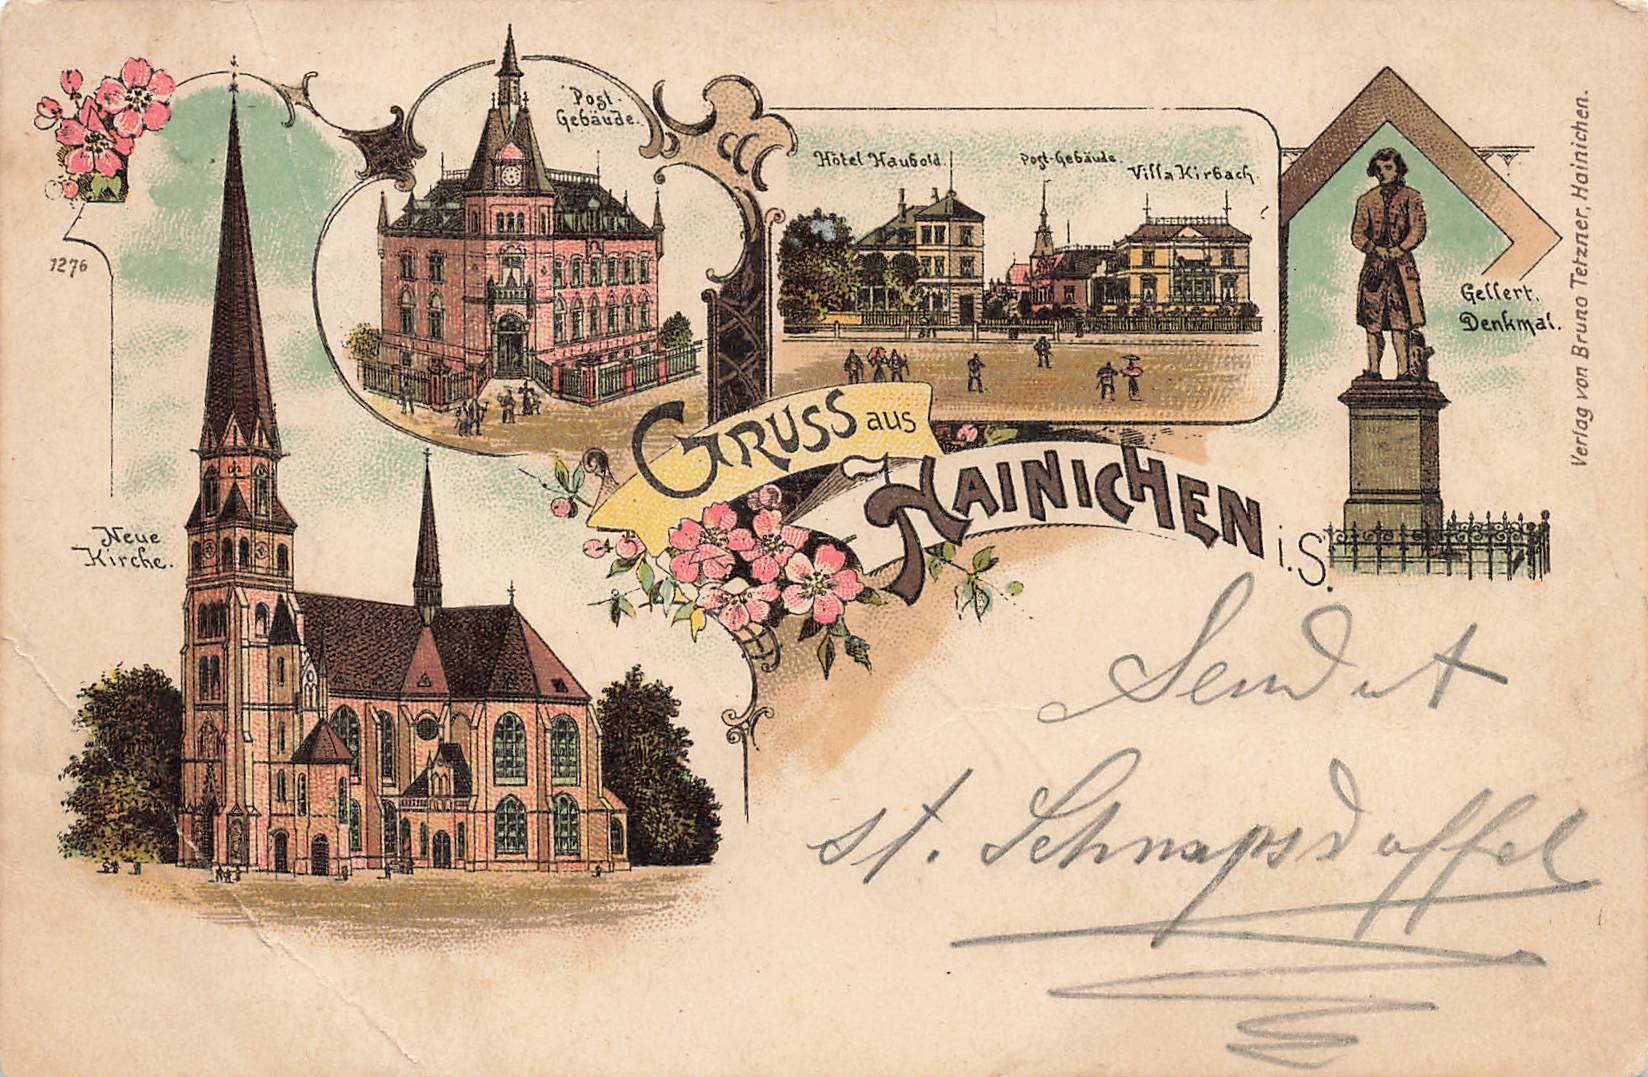 Post-
Gebäude.
Hôtel Haubold.
Post-Gebäude.
Villa Kirbach.
1276
Gellert.
Denkmal.
Verlag von Bruno Tetzner, Hainichen.
GRUSS aus
HAINICHEN i. S.
Neue
Kirche.
Sendet
st. Schnapsdoffel